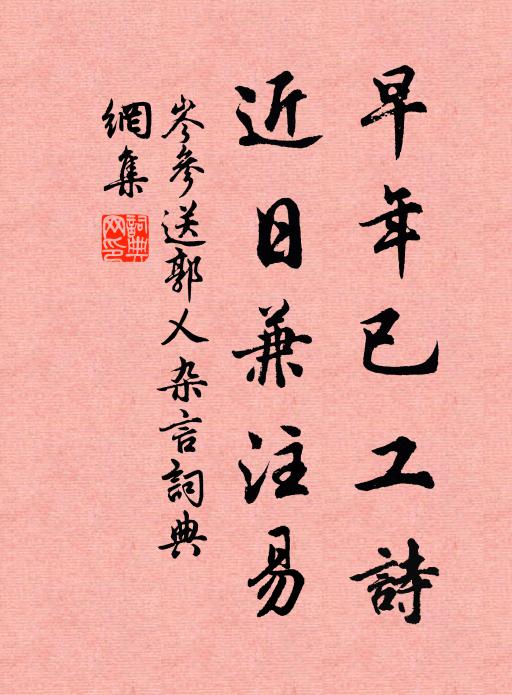 早年已工詩
近日兼注易
岑參送郭乂杂言詞典
網集
詞典網印